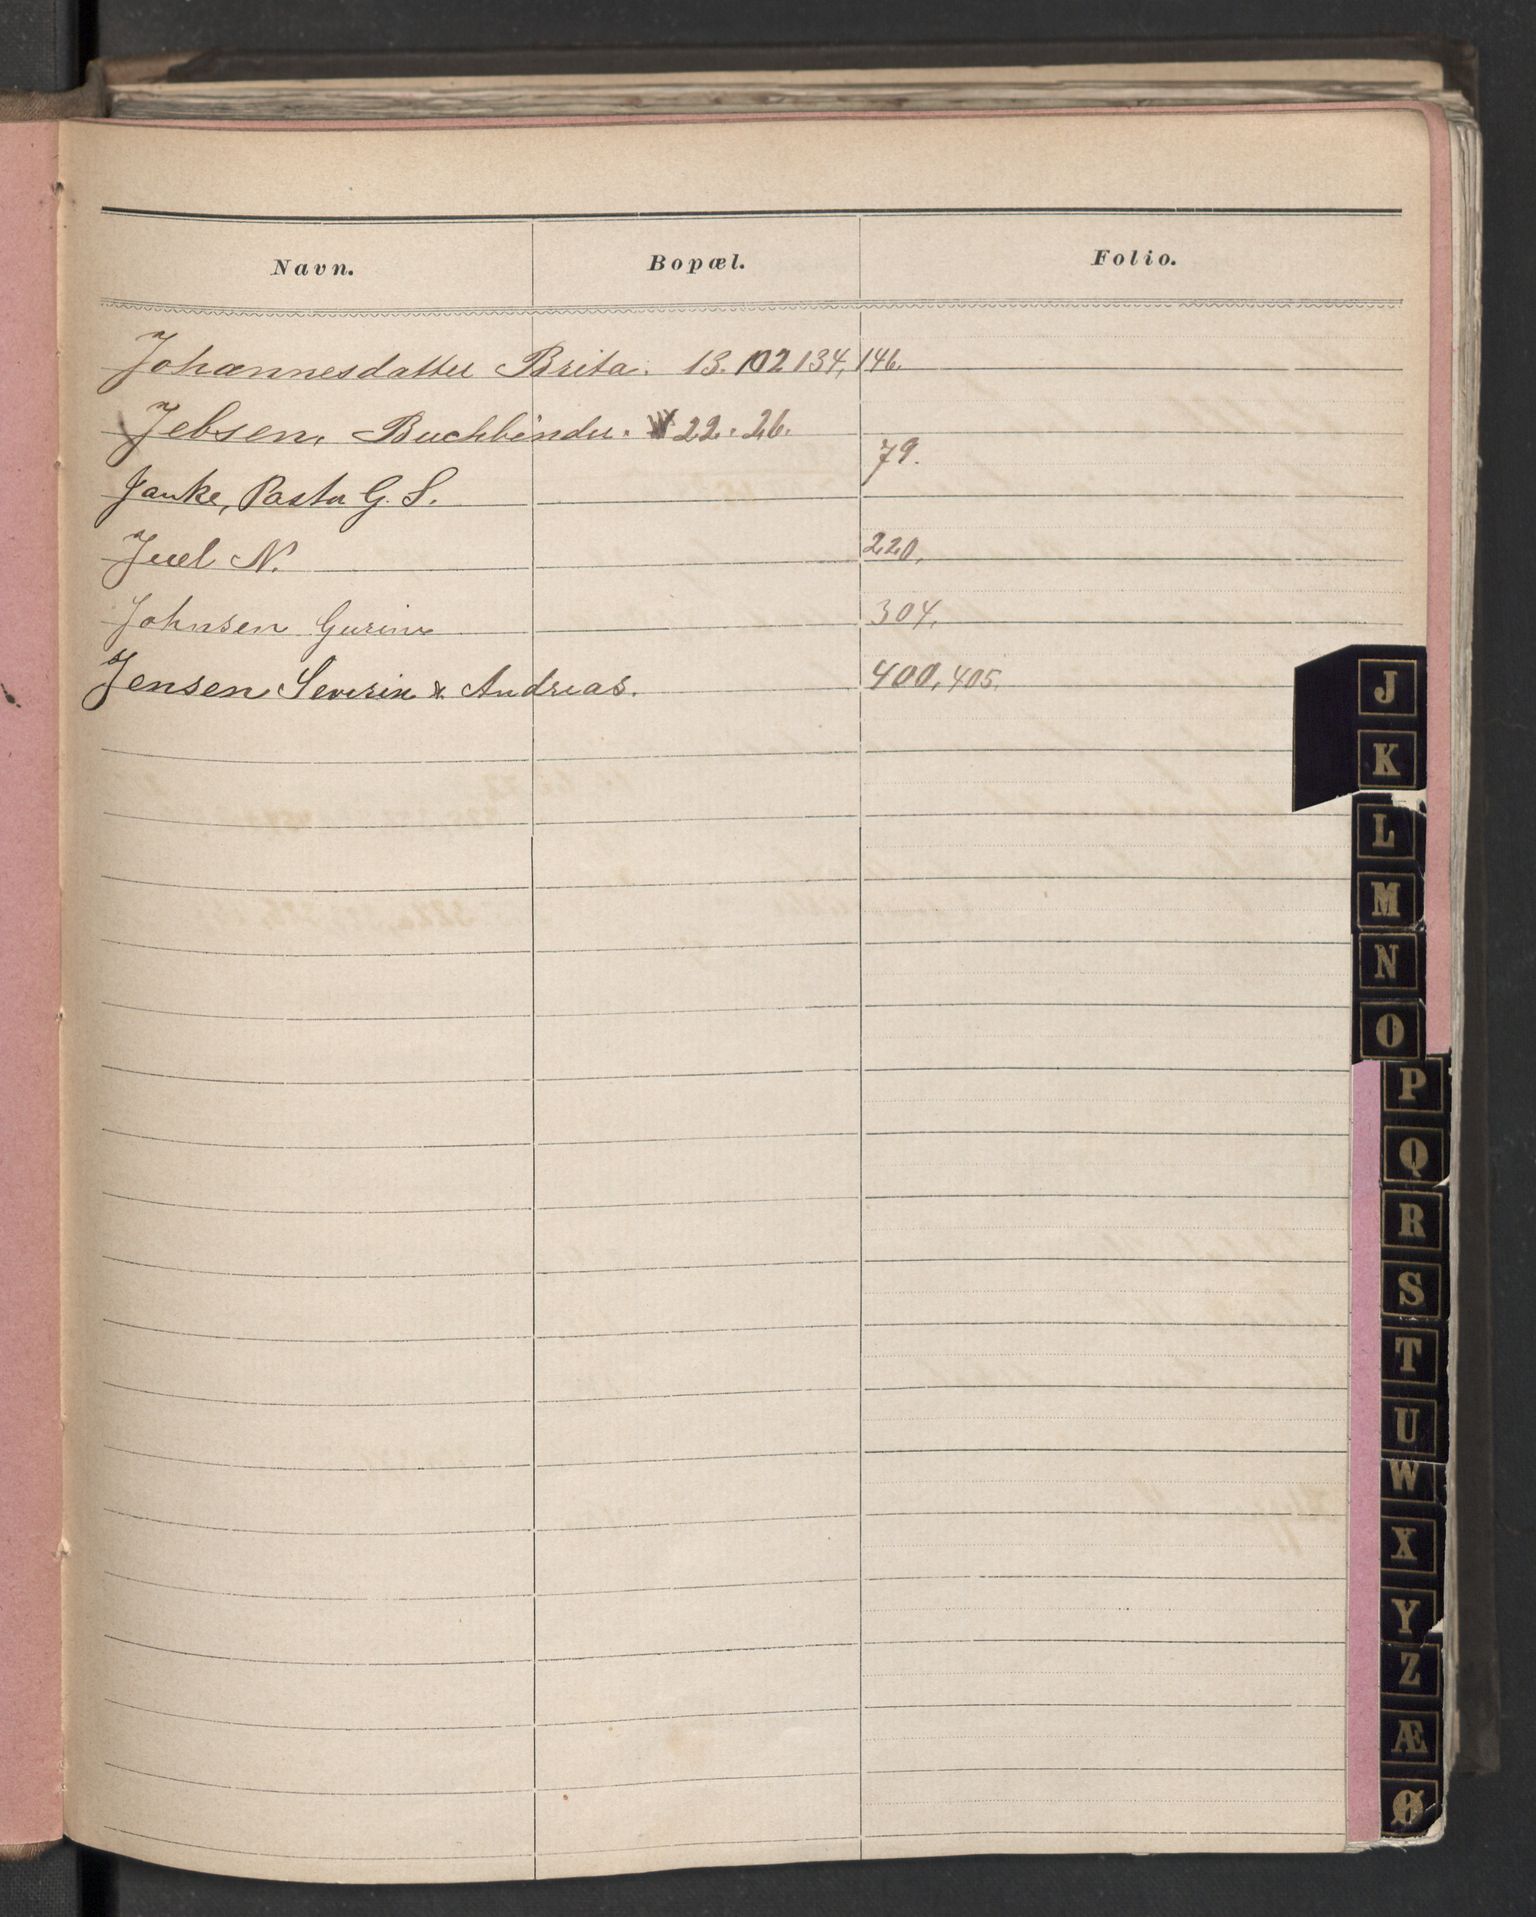 Navn. Bopæl. Folio.
Johannesdatter Brita. 13. 102 134, 146.
Jebsen, Buchbinder. 22. 26.
79.
Janke, Pastor G. S.
Juel N. 220,
Johnsen Gurine 304,
Jensen Severin & Andreas. 400, 405.
J
K
L
M
N
O
P
Q
R
S
T
U
W
X
Y
Z
Æ
Ø